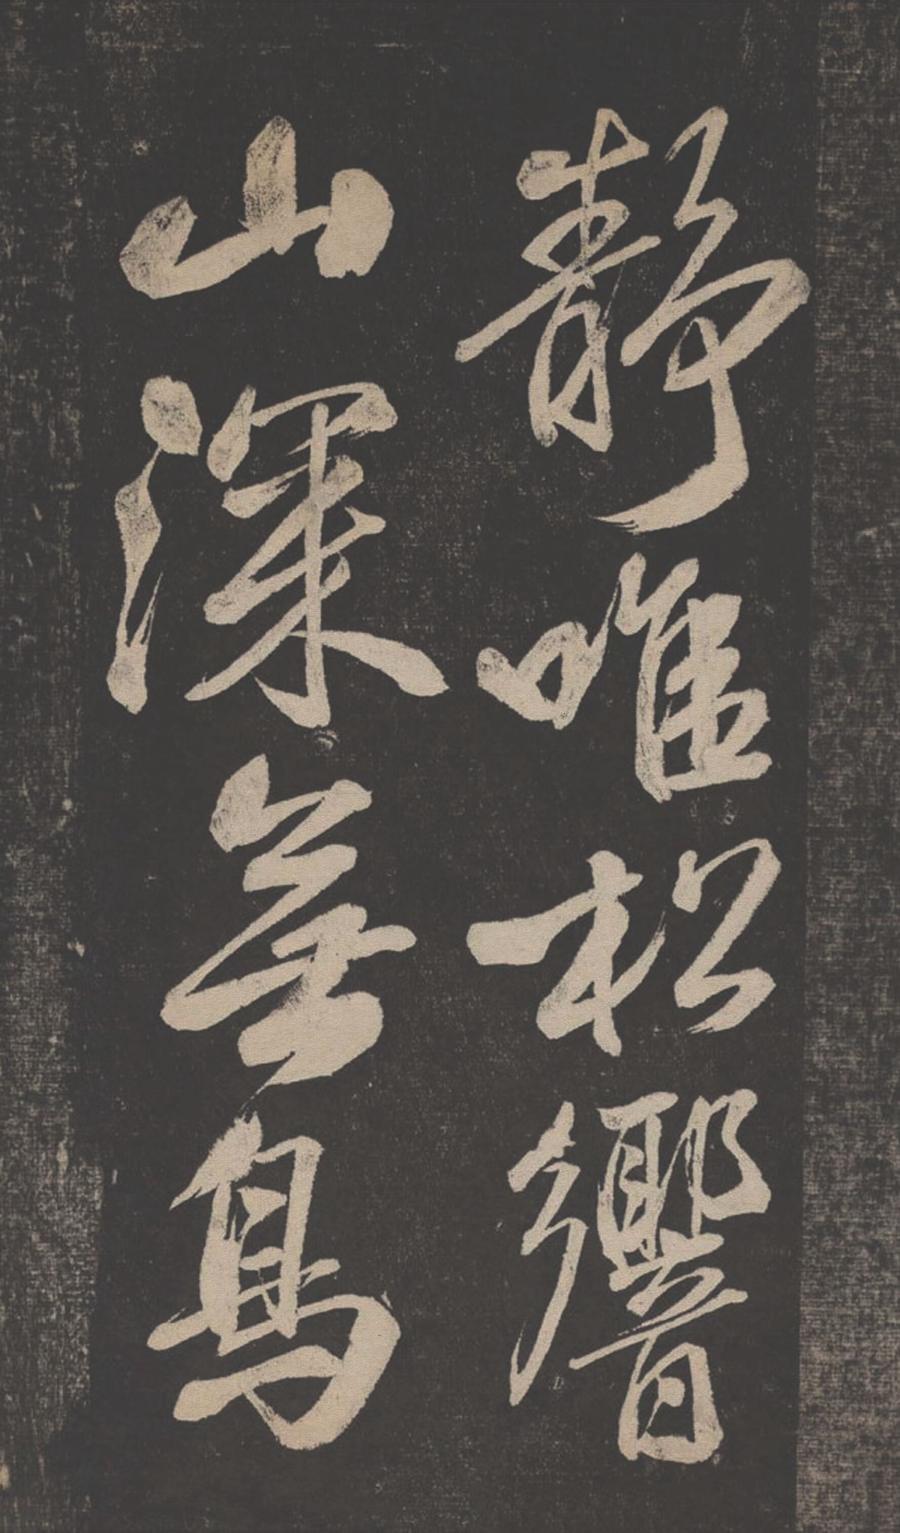 靜唯松響
山深無鳥